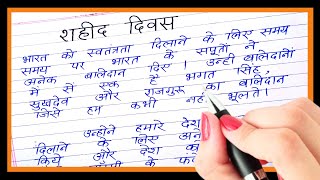 शहीद दिवस
भारत को स्वतंत्रता दिलाने के लिए समय
समय पर भारत के सपूतों ने
अनेक बलिदान दिए। उन्हीं बलिदानों
में से एक है भगत सिंह,
सुखदेव और राजगुरू का बलिदान
जिसे हम कभी नहीं भूलते।
उन्होंने हमारे देश
दिलाने के लिए
किये और देश
के